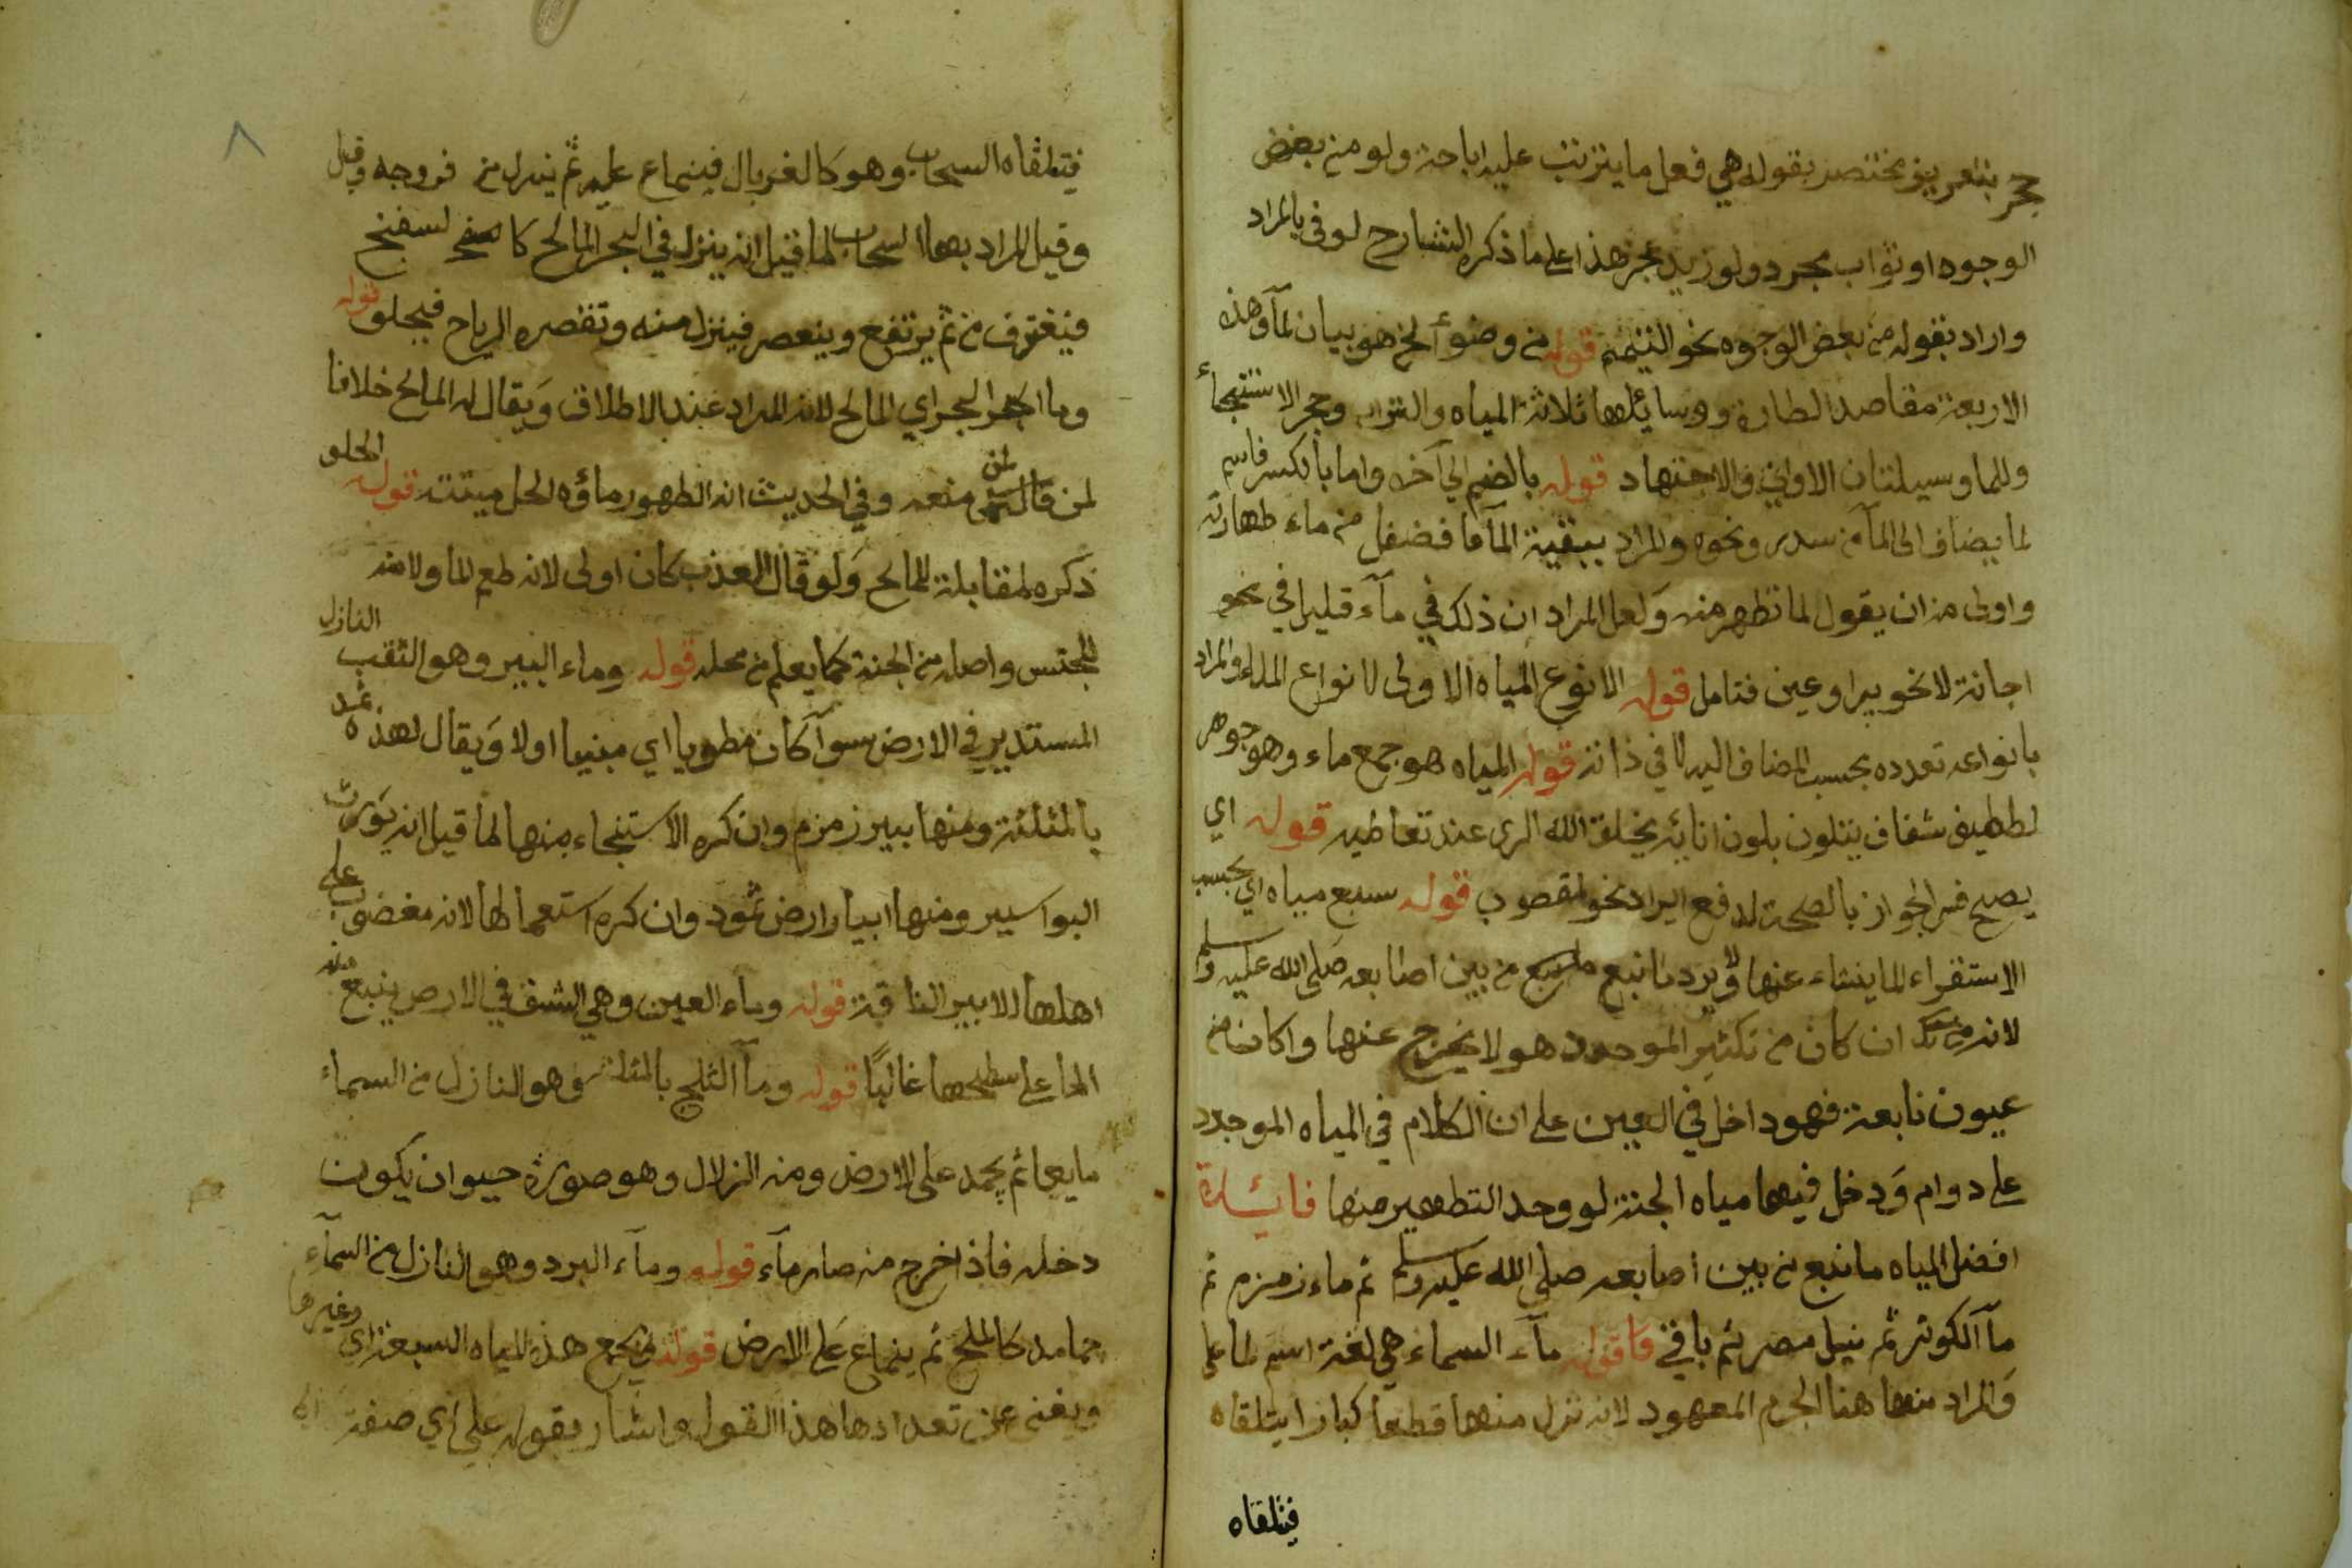 حجر بتعريف مختصر بقوله هي فعل ما يترتب عليه اباحة ولو من بعض
الوجوه او ثواب مجرد ولو زيد عجز هذا على ما ذكره الشارح لوفى بالمراد
واراد بقوله من بعض الوجوه نحو التيمم قوله من وضوء الخ هو بيان لما وهذه
الاربعة مقاصد الطهارة ووسائلها ثلاثة المياه والتراب وحجر الاستنجاء
وللما وسيلتان الاواني والاجتهاد قوله بالضم الى آخره واما بالكسر فاسم
لما يضاف الى الماء من سدر ونحوه والمراد ببقية الماء ما فضل من ماء طهارته
واولى من ان يقول لما تطهر منه ولعل المراد ان ذلك في مآء قليل في نحو
اجانة لا نحو بير او عين فتامل قوله الانوع المياه الاولى لانواع الماء والمراد
بانواعه تعدده بحسب المضاف اليه لا في ذاته قوله المياه هو جمع ماء وهو جوهر
لطيف شفاف يتلون بلون انائه يخلق الله الرى عند تعاطيه قوله اي
يصح فسر الجواز بالصحة لدفع ايراد نحو المغصوب قوله سبع مياه اي بحسب
الاستقراء لما ينشاء عنها ولا يرد ما نبع من بين اصابعه صلى الله عليه وسلم
لانه ان كان من تكثير الموجود هو لا يخرج عنها وا كان من
عيون نابعة فهو داخل في العين على ان الكلام في المياه الموجودة
على دوام ودخل فيها مياه الجنة لو وجد التطهير منها فايدة
افضل المياه ما نبع من بين اصابعه صلى الله عليه وسلم ثم ماء زمزم ثم
مآ الكوثر ثم نيل مصر ثم باقي قوله مآء السماء هي لغة اسم لما على
والمراد منها هنا الجرم المعهود لانه نزل منها قطعا كبارا يتلقاه
فيتلقاه
٨
فيتلقاه السحاب وهو كالغربال فينماع عليه ثم ينزل من فروجه وقيل
وقيل المراد بها السحاب لما قيل انه ينزل في البحر المالح كا لسفنج
فيغترف من ثم يرتفع وينعصر فينزل منه وتقصره الرياح فيحلو قوله
وما البحر اي المالح لانه المراد عند الاطلاق ويقال له المالح خلافا
لمن قال منعه وفي الحديث انه الطهور ماؤه الحل ميتته قوله الحلو
ذكره لمقابلة المالح ولو قال العذب كان اولى لانه طعم الماء ولانه
للجنس واصله من الجنة كما يعلم من محله قوله وماء البير وهو الثقب النازل
المستدير في الارض سوآ كان مطويا اي مبنيا اولا ويقال لهذه ثمد
بالمثلثة ومنها بير زمزم وان كره الاستنجاء منها لما قيل انه يورث
البواسير ومنها ابيار ارض ثمود وان كره استعمالها لانه مغضوب على
اهلها الا بير الناقة قوله وماء العين وهي الشق في الارض ينبع منه
الماء على سطحها غالبًا قوله ومآ الثلج بالمثلثة وهو النازل من السماء
مايعا ثم يجمد على الارض ومنه الزلال وهو صورة حيوان يكون
دخله فاذا خرج منه صار مآء قوله ومآء البرد وهو النازل من السمآء
جامدا كالملح ثم ينماع على الارض قوله يجمع هذه المياه السبعة اي وغيرها
ويغنى عن تعدادها هذا القول واشار بقوله على اي صفة الى